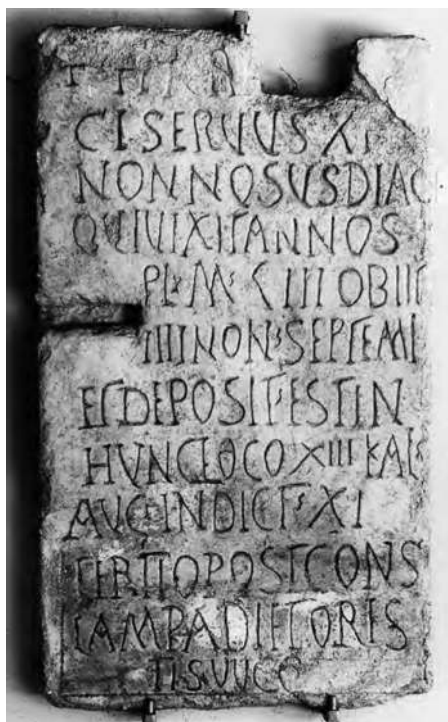 CI SERVUS XI
NONNOSUS DIAC
QUI VIXIT ANNOS
PL·M·CIII OBIIT
IIII NON·SEPTEM
ET DEPOSIT·EST IN
HUNC LOCO XIII KAL·
AUG·INDICT·XI
TERTIO POST CONS
LAMPADI ET ORES
TIS VV CC